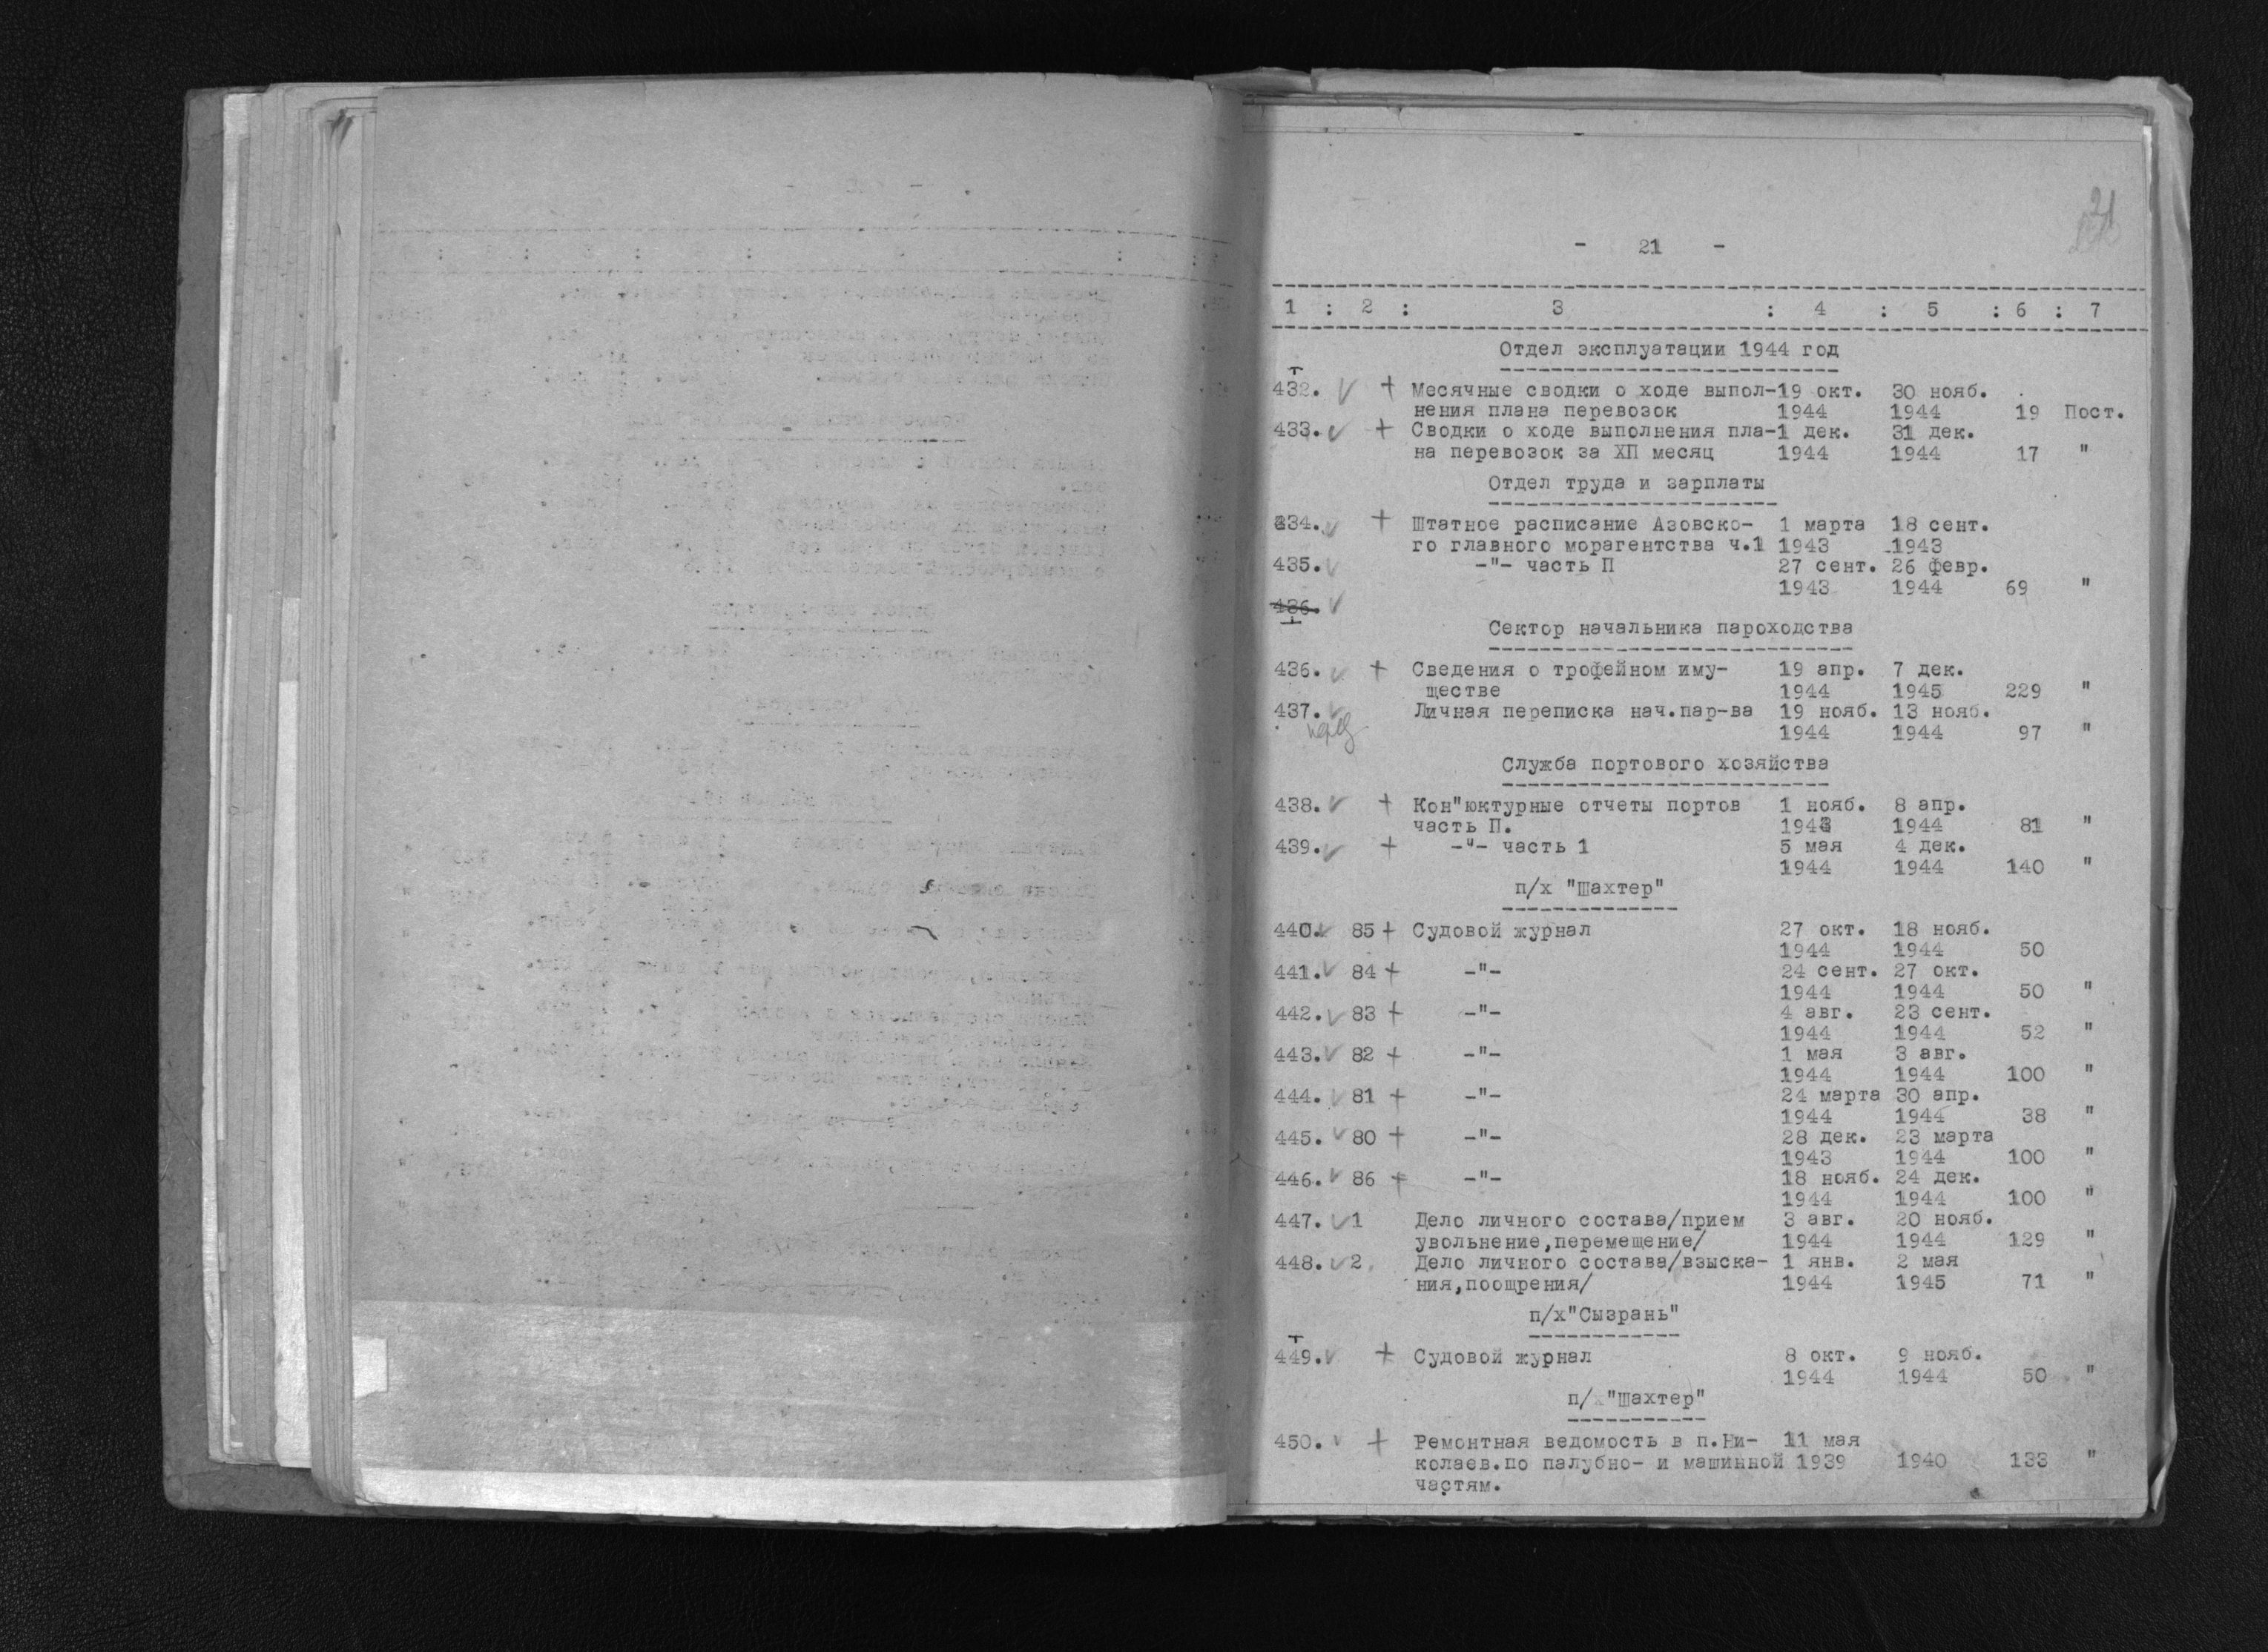 21
- 21 -
1 : 2 : 3 : 4 : 5 : 6 : 7
Отдел эксплуатации 1944 год
432. ✓ + Месячные сводки о ходе выпол- 19 окт. 30 нояб.
нения плана перевозок 1944 1944 19 Пост.
433. ✓ + Сводки о ходе выполнения пла- 1 дек. 31 дек.
на перевозок за ХП месяц 1944 1944 17 "
Отдел труда и зарплаты
434. ✓ + Штатное расписание Азовско- 1 марта 18 сент.
го главного морагентства ч.1 1943 1943
435. ✓ -"- часть П 27 сент. 26 февр.
1943 1944 69 "
436. ✓
Сектор начальника пароходства
436. ✓ + Сведения о трофейном иму- 19 апр. 7 дек.
ществе 1944 1945 229 "
437. ✓ Личная переписка нач.пар-ва 19 нояб. 13 нояб.
1944 1944 97 "
Служба портового хозяйства
438. ✓ + Кон"юктурные отчеты портов 1 нояб. 8 апр.
часть П. 1943 1944 81 "
439. ✓ + -"- часть 1 5 мая 4 дек.
1944 1944 140 "
п/х "Шахтер"
440. ✓ 85 + Судовой журнал 27 окт. 18 нояб.
1944 1944 50
441. ✓ 84 + -"- 24 сент. 27 окт.
1944 1944 50 "
442. ✓ 83 + -"- 4 авг. 23 сент.
1944 1944 52 "
443. ✓ 82 + -"- 1 мая 3 авг.
1944 1944 100 "
444. ✓ 81 + -"- 24 марта 30 апр.
1944 1944 38 "
445. ✓ 80 + -"- 28 дек. 23 марта
1943 1944 100 "
446. ✓ 86 + -"- 18 нояб. 24 дек.
1944 1944 100 "
447. ✓ 1 Дело личного состава/прием 3 авг. 20 нояб.
увольнение,перемещение/ 1944 1944 129 "
448. ✓ 2 Дело личного состава/взыска- 1 янв. 2 мая
ния,поощрения/ 1944 1945 71 "
п/х"Сызрань"
449. ✓ + Судовой журнал 8 окт. 9 нояб.
1944 1944 50 "
п/х"Шахтер"
450. ✓ + Ремонтная ведомость в п.Ни- 11 мая
колаев.по палубно- и машинной 1939 1940 133 "
частям.